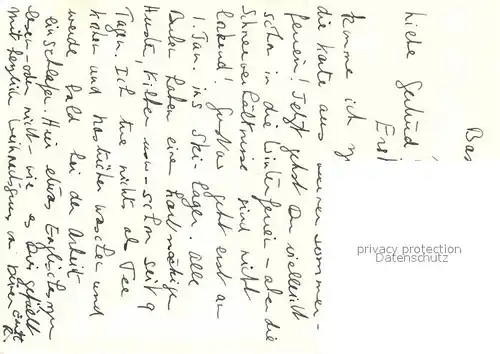 Bas
Liebe Gertrud,
Erst
komme ich
die Karte aus meinen Sommer-
ferien! Jetzt gehst Du vielleicht
schon in die Winterferien – aber die
Schneeverhältnisse sind nicht
lockend! Gustav geht erst am
1. Jan. ins Ski-lager. Alle
Buben haben einen hartnäckigen
Husten, Kilben usw – schon seit 9
Tagen. Ich tue nichts als Tee
kochen und Nastücher waschen und
werde bald bei der Arbeit
einschlafen. Hier etwas Englisches zu
lesen – oder nicht – wie es Dir gefällt
Mit herzlichen Weihnachtsgrüssen von Deiner
privacy protection
Datenschutz